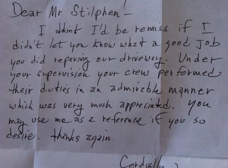 Dear Mr. Stilphen -
I think I'd be remiss if I
didn't let you know what a good job
you did reparing our driveway. Under
your supervision your crew performed
their duties in an admirable manner
which was very much appreciated. You
may use me as a reference if you so
desire. Thanks again.
Cordially,